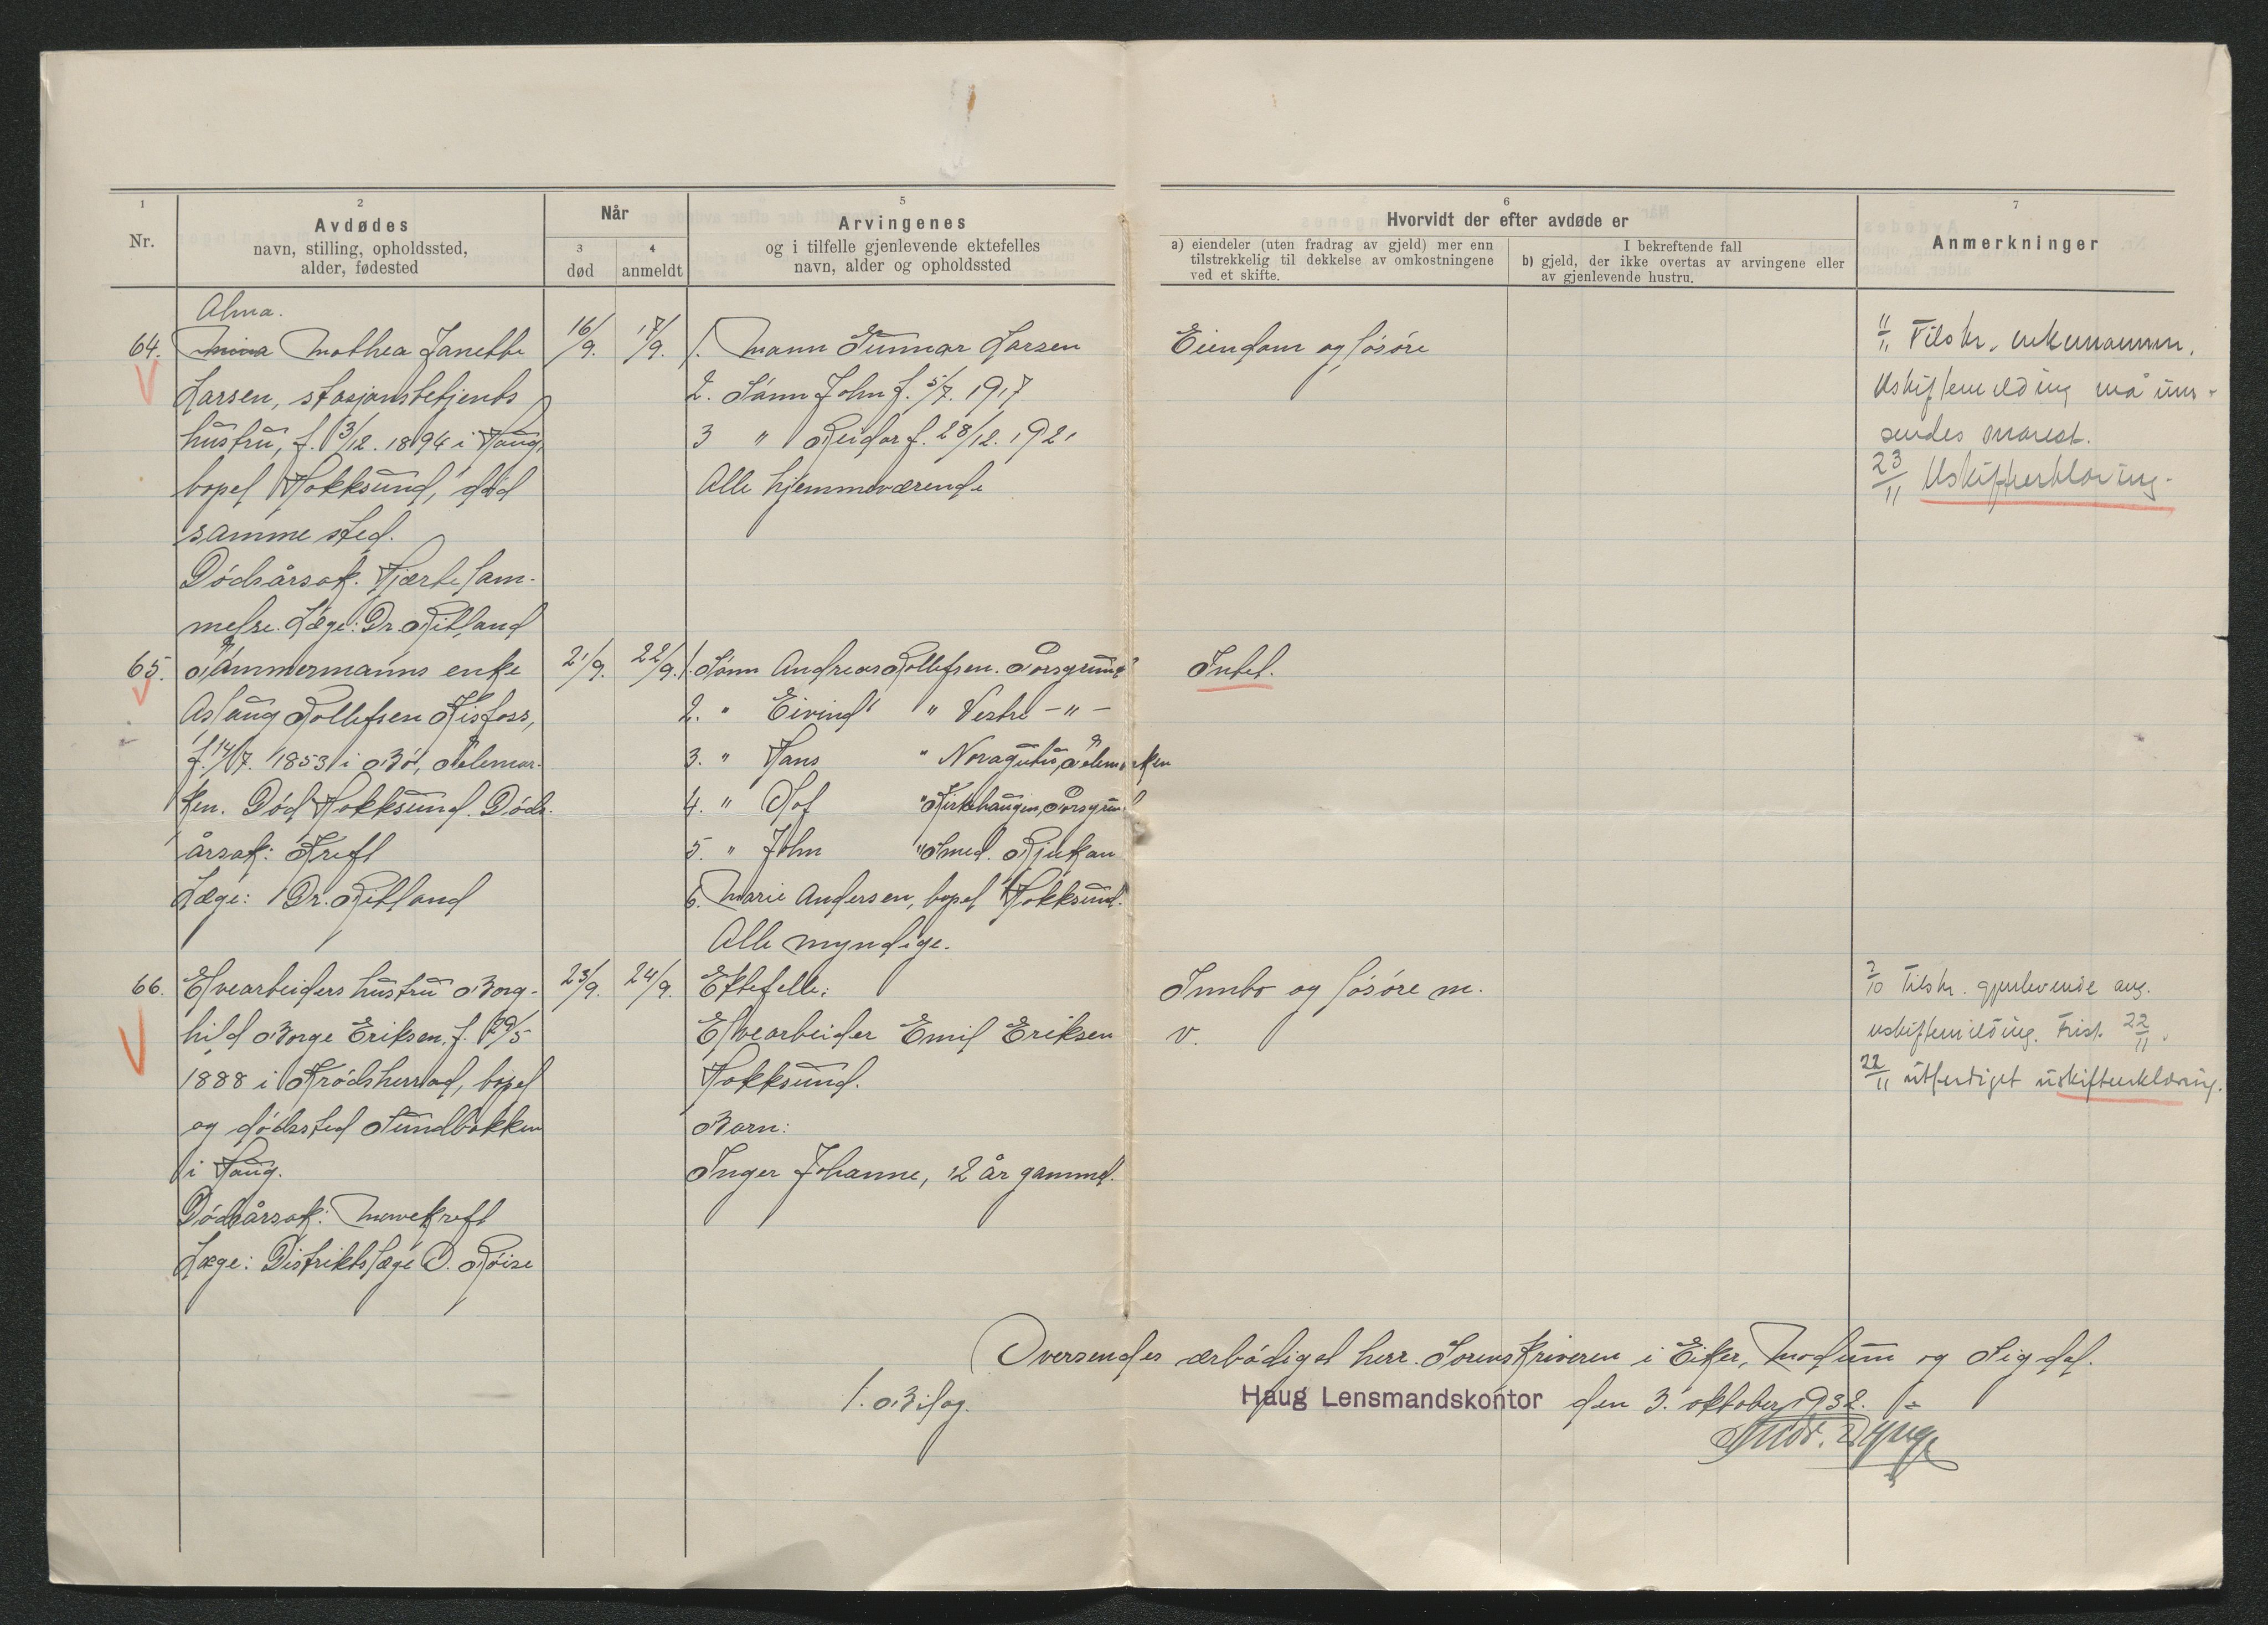 1
Nr.
2
Avdødes
navn, stilling, opholdssted,
alder, fødested
Når
3
død
4
anmeldt
5
Arvingenes
og i tilfelle gjenlevende ektefelles
navn, alder og opholdssted
6
Hvorvidt der efter avdøde er
a) eiendeler (uten fradrag av gjeld) mer enn
tilstrekkelig til dekkelse av omkostningene
ved et skifte.
I bekreftende fall
b) gjeld, der ikke overtas av arvingene eller
av gjenlevende hustru.
7
Anmerkninger
Alma.
64. Mathea Janette
Larsen, stasjonsbetjents
hustru, f. 3/12. 1894 i Haug,
bopel Hokksund, død
samme sted.
Dødsårsak. Hjertelam-
melse. Læge: Dr. Ritland
16/9. 17/9.
1. Mann Gunnar Larsen
2. Sønn John f. 5/7. 1917
3 " Reidar f. 28/12. 1921
Alle hjemmeværende
Eiendom og løsøre
11/11 Tilskr. enkemannen.
Uskiftemelding må inn-
sendes snarest.
23/11 Uskifteerklæring.
65. Tømmermanns enke
Aslaug Rollefsen Hisfoss,
f. 14/7. 1853 i Bø, Telemar-
ken. Død Hokksund. Døds-
årsak: Kreft
Læge: Dr. Ritland
21/9. 22/9.
1. Sønn Andreas Rollefsen. Porsgrund
2. " Eivind " Vestre -"-
3. " Hans " Noragutu, Telemarken
4. " Olof " Kirkehaugen, Porsgrund
5. " John " Smed. Rjukan
6. Marie Andersen, bopel Hokksund.
Alle myndige.
Intet.
66. Elvearbeiders hustru Borg-
hild Borge Eriksen, f. 29/5
1888 i Krødsherrad, bopel
og dødssted Sundbakken
i Haug.
Dødsårsak: Mavekreft
Læge: Distriktslæge O. Røise
23/9. 24/9.
Ektefelle:
Elvearbeider Emil Eriksen
Hokksund.
Barn:
Inger Johanne, 12 år gammel.
Innbo og løsøre m.
v.
7/10 Tilskr. gjenlevende ang.
uskiftemelding. Frist 22/11.
22/11 utferdiget uskifteerklæring.
Oversendes ærbødigst herr Sorenskriveren i Eiker, Modum og Sigdal.
1. Bilag.
Haug Lensmandskontor den 3. oktober 1932.